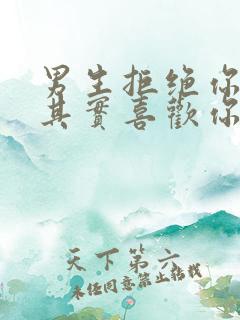 男生拒绝你
其實喜歡你
天下第六
未经同意禁止转载